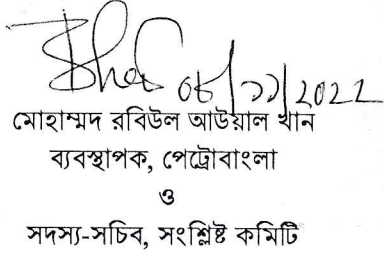 ০৮/১১/2022
মোহাম্মদ রবিউল আউয়াল খান
ব্যবস্থাপক, পেট্রোবাংলা
ও
সদস্য-সচিব, সংশ্লিষ্ট কমিটি